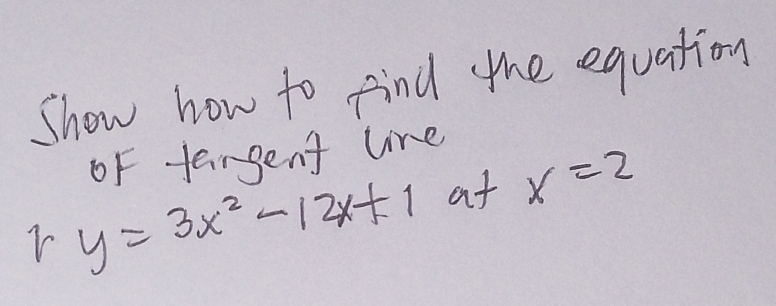 Show how to find the equation
of tangent line
r y = 3x² - 12x + 1 at x = 2